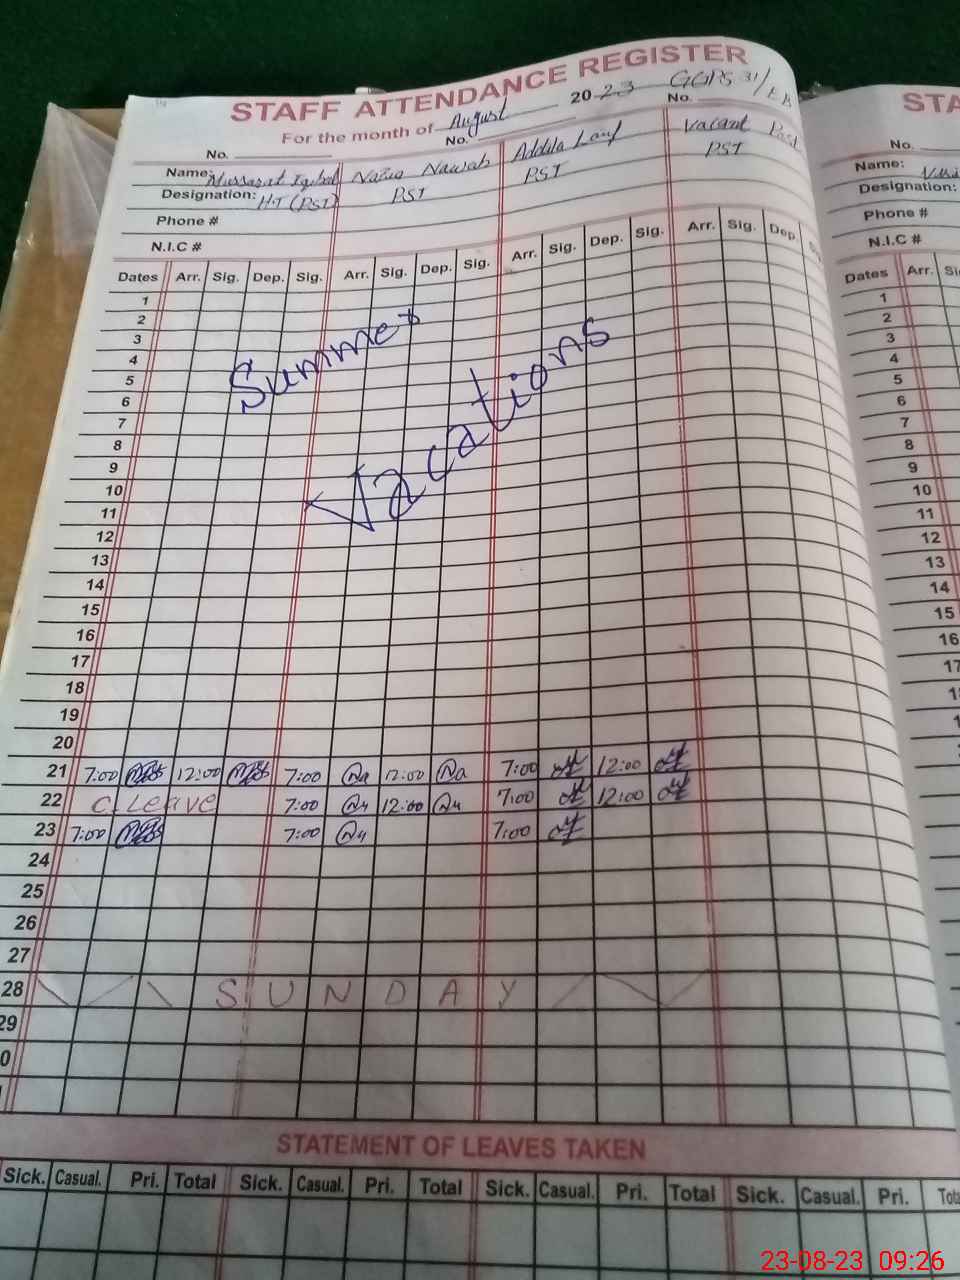 STAFF ATTENDANCE REGISTER
For the month of August 2023 GGPS 31/EB
No. No. No.
Name: Mussarat Iqbal Nazia Nawab Addila Lauf Vacant Post
Designation: HT (PST) PST PST PST
Phone #
N.I.C #
Dates Arr. Sig. Dep. Sig. Arr. Sig. Dep. Sig. Arr. Sig. Dep. Sig. Arr. Sig. Dep.
1
2
3
4
5
6
7
8
9
10
11
12
13
14
15
16
17
18
19
20
Summer
Vacations
21 7:00 12:00 7:00 12:00 7:00 12:00
22 C. Leave 7:00 12:00 7:00 12:00
23 7:00 7:00 7:00
24
25
26
27
28 SUNDAY
29
0
STATEMENT OF LEAVES TAKEN
Sick. Casual. Pri. Total Sick. Casual. Pri. Total Sick. Casual. Pri. Total Sick. Casual. Pri. Tota
STA
No.
Name:
Designation:
Phone #
N.I.C #
Dates Arr. Si
1
2
3
4
5
6
7
8
9
10
11
12
13
14
15
16
17
23-08-23 09:26